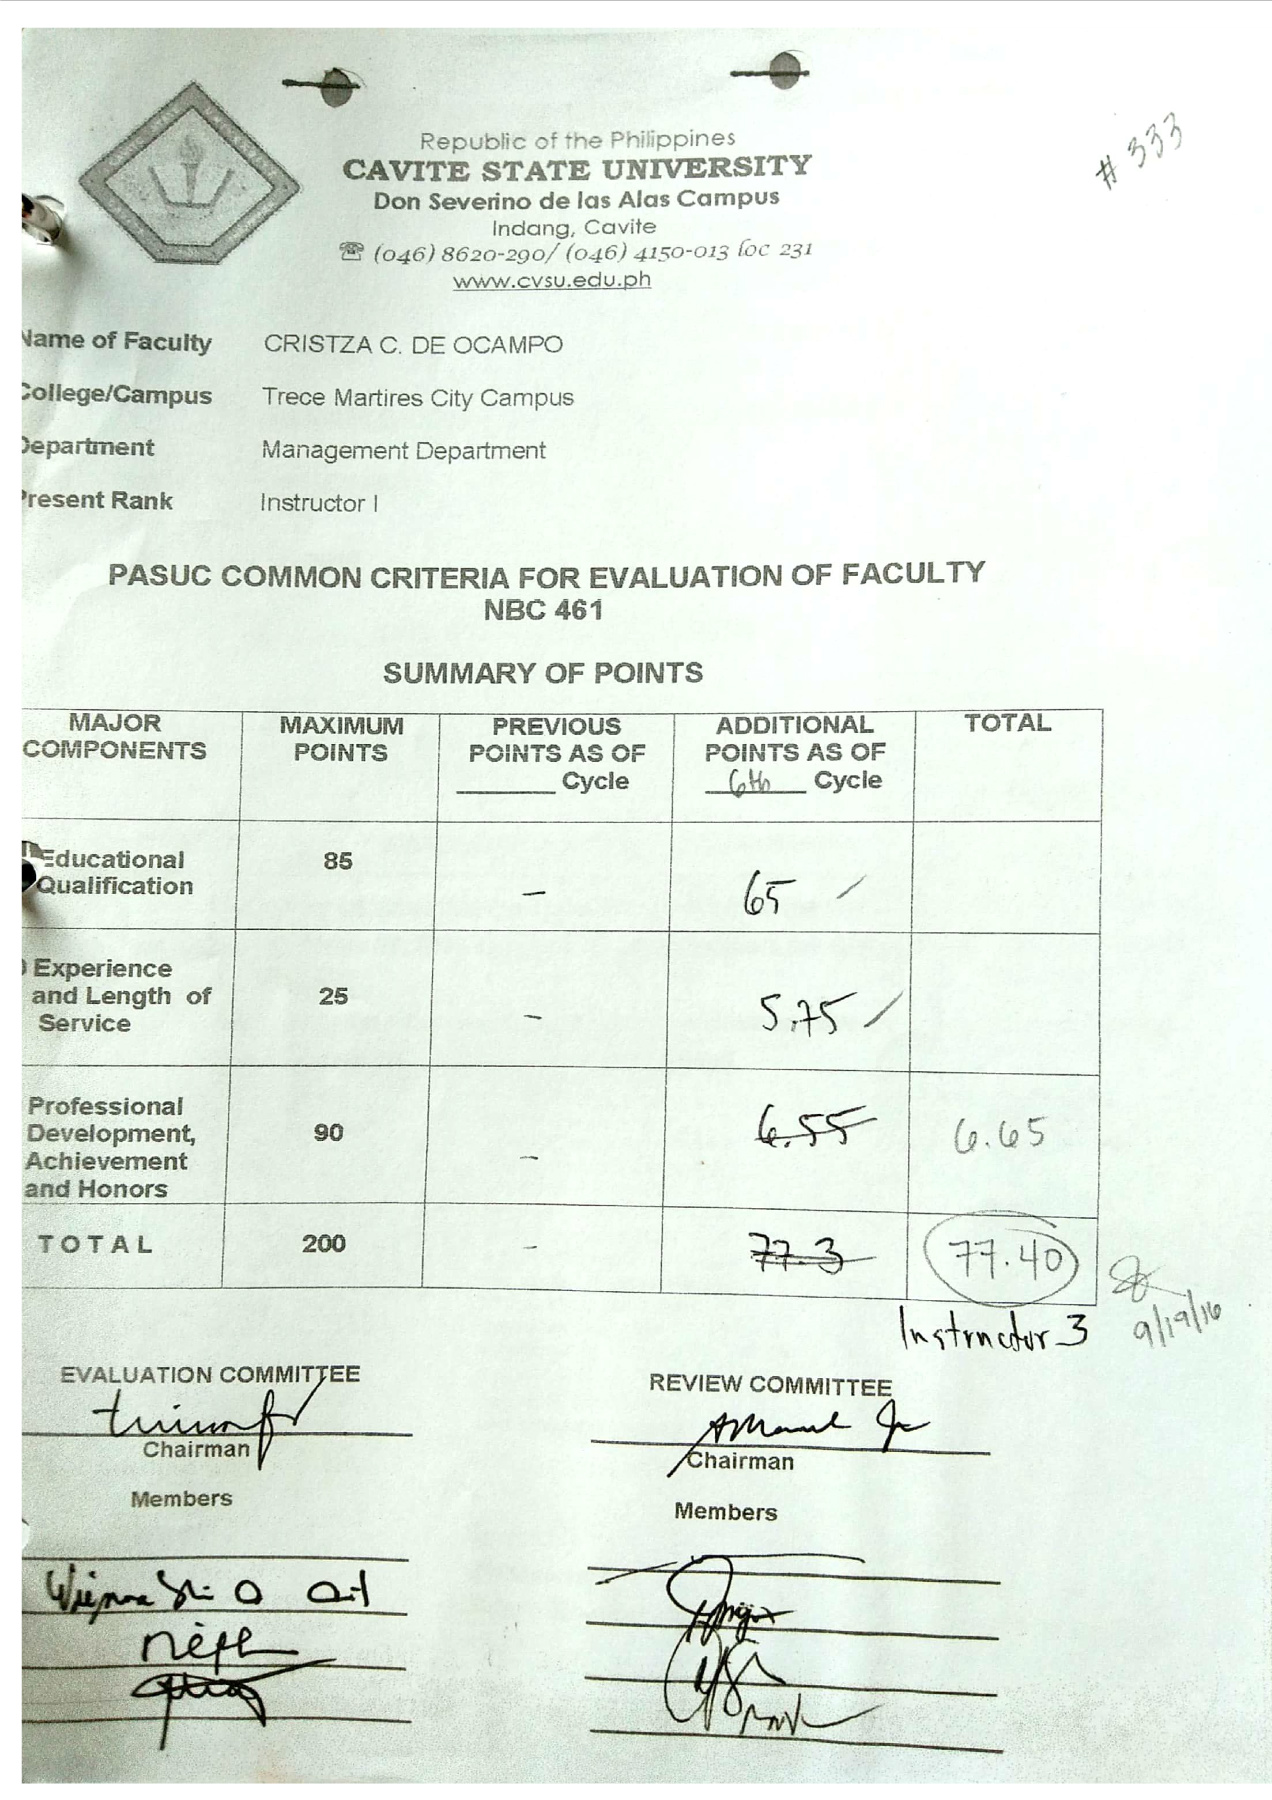 # 333
Republic of the Philippines
CAVITE STATE UNIVERSITY
Don Severino de las Alas Campus
Indang, Cavite
☎ (046) 8620-290/ (046) 4150-013 loc 231
www.cvsu.edu.ph
Name of Faculty CRISTZA C. DE OCAMPO
College/Campus Trece Martires City Campus
Department Management Department
Present Rank Instructor I
PASUC COMMON CRITERIA FOR EVALUATION OF FACULTY
NBC 461
SUMMARY OF POINTS
MAJOR COMPONENTS MAXIMUM POINTS PREVIOUS POINTS AS OF ______ Cycle ADDITIONAL POINTS AS OF 6th Cycle TOTAL
Educational Qualification 85 – 65
Experience and Length of Service 25 – 5.75
Professional Development, Achievement and Honors 90 – 6.55 6.65
TOTAL 200 – 77.3 77.40
Instructor 3
9/19/16
EVALUATION COMMITTEE
Chairman
Members
REVIEW COMMITTEE
Chairman
Members